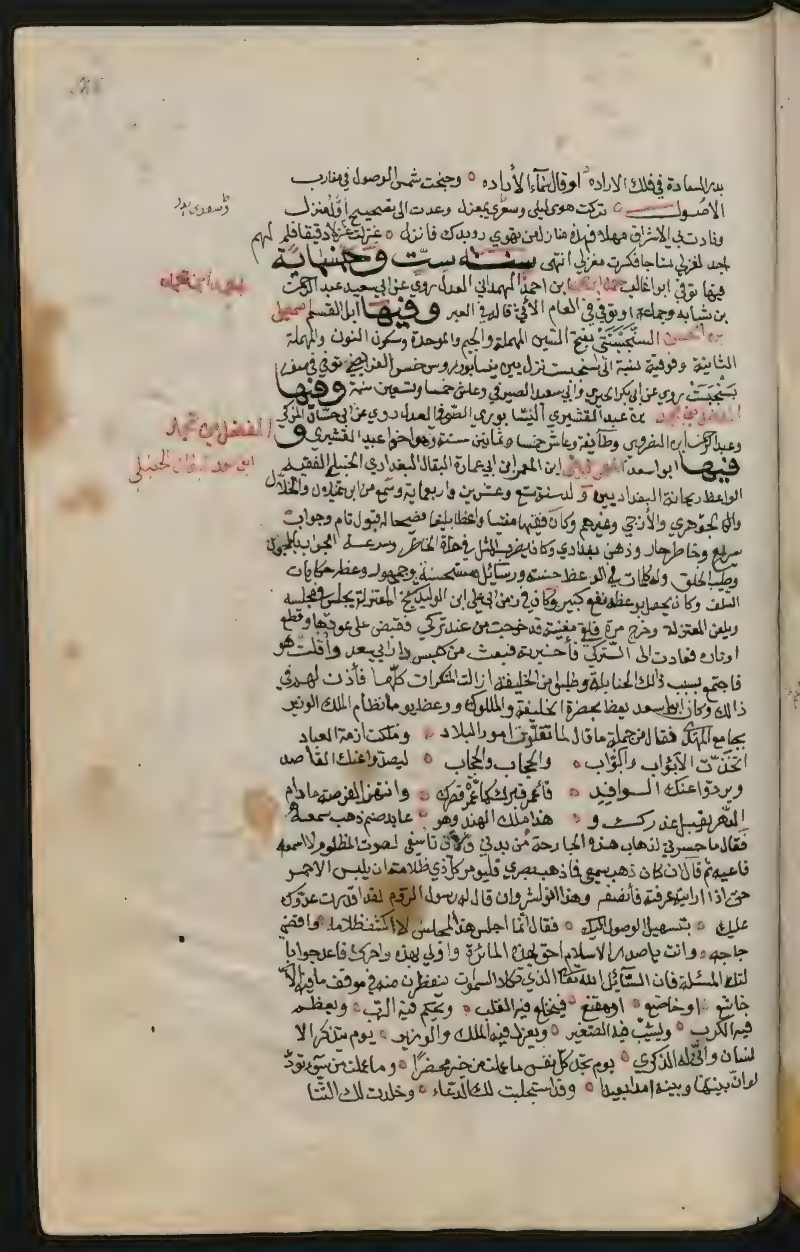 بدر السعادة في فلك الاراده او قال سماء الأباده ه وجنحت شمس الوصول في مغارب
الاصول ه تركت هوى ليلى وسعدى بمعزل وعدت الى تصحيح اول منزل
ونادت بي الاشواق مهلا فهذه منازل من تهوى رويدك فانزل ه غزلت لهم غزلا دقيقا فلم
اجد لغزلي نساجا فكسرت مغزلي انتهى سنة ست وخمسمائة
فيها توفي ابو غالب ابن احمد الهمداني العدل روى عن ابي سعيد عبد الرحمن
بن شبابه وجماعة او توفي في العام الآتي قاله في العبر وفيها ابو القسم اسمعيل
بن الحسن السنجبستي بفتح السين المهملة والجيم والموحدة وسكون النون والمهملة
الثانية وفوقية نسبة الى سنجبست منزل بين نيسابور وسرخس الفرايضي توفي في صفر
بسنجبست روى عن ابي بكر الحيري وابي سعيد الصيرفي وعاش خمسا وتسعين سنة وفيها
الفضل بن محمد بن عبيد القشيري النيسابوري الصوفي العدل روى عن ابي حسان المزكي
وعبد الرحمن ابن النصروي وطايفة وعاش خمسا وثمانين سنة وهو اخو عبيد القشيري و
فيها ابو سعد المعمر بن علي ابن المعمر ابن ابي عمارة البقال البغدادي الحنبلي الفقيه
الواعظ ريحانة البغداديين ولد سنة تسع وعشرين واربعماية وسمع من ابن غيلان والخلال
والجوهري والأزجي وغيرهم وكان فقيها مفتيا واعظا بليغا فصيحا له قبول تام وجواب
سريع وخاطر حاد وذهن بغدادي وكان يضرب به المثل في حدة الخاطر وسرعة الجواب بالمجون
وطيب الخلق وله كلمات في الوعظ حسنة ورسائل مستحسنة وجمهور وعظه حكايات
السلف وكان يحصل بوعظه نفع كبير وكان في زمن ابي علي ابن الوليد شيخ المعتزلة يجلس في مجلسه
ويلعن المعتزلة وخرج مرة فلقي مغنية قد خرجت من عند تركي فقبض على عودها وقطع
اوتاره فعادت الى التركي فأخبرته فبعث من كبس دار ابي سعد وأفلت هو
فاجتمع بسبب ذلك الحنابلة وطلبوا من الخليفة ازالت المنكرات كلها فأذن لهم في
ذالك وكان ابو سعد يعظ بحضرة الخليفة والملوك ووعظ يوما نظام الملك الوزير
بجامع المهدي فقال من جملة ما قال لما تقلدت امور البلاد ه وملكت ازمة العباد
اتخذت الابواب والبواب ه والحجاب والحجاب ه ليصدوا عنك القاصد
ويردوا عنك الوافد ه فاعمر قبرك كما عمرت قصرك ه وانتهز الفرصة مادام
الدهر يقبل عذرك و ه هذا ملك الهند وهو ه عابد صنم ذهب سمعه
فقال ما حسرتي لذهاب هذه الجارحة من بدني ولكن تأسفي لصوت المظلوم لا اسمعه
فاغيثه ثم قال ان كان ذهب سمعي فما ذهب بصري فليؤمر كل ذي ظلامة ان يلبس الاحمر
حتى اذا رايته عرفته فأنصفه وهذا انوشروان قال له رسول الروم لقد اقدرت عدوك
عليك ه بتسهيل الوصول اليك ه فقال انما اجلس هذا المجلس لاكشف ظلامة واقضي
حاجه ه وانت يا صدر الاسلام احق بهذه المأثرة واولى بهذه واحرى فاعد جوابا
لتلك المسئلة فان السائل الله تعالى الذي تكاد السموات يتفطرن منه في موقف ما فيه الا
خاشع ه او خاضع ه او مقنع ه فينخلع فيه القلب ه ويحكم فيه الرب ه ويعظم
فيه الكرب ه ويشيب فيه الصغير ه ويعزل فيه الملك والوزير ه يوم يتذكر الا
نسان وانى له الذكرى ه يوم تجد كل نفس ما عملت من خير محضرا ه وما عملت من سوء تود
لو ان بينها وبينه امدا بعيدا ه وقد استجلبت لك الدعاء ه وخلدت لك الثنا
المفضل بن محمد
ابو سعد البقال الحنبلي